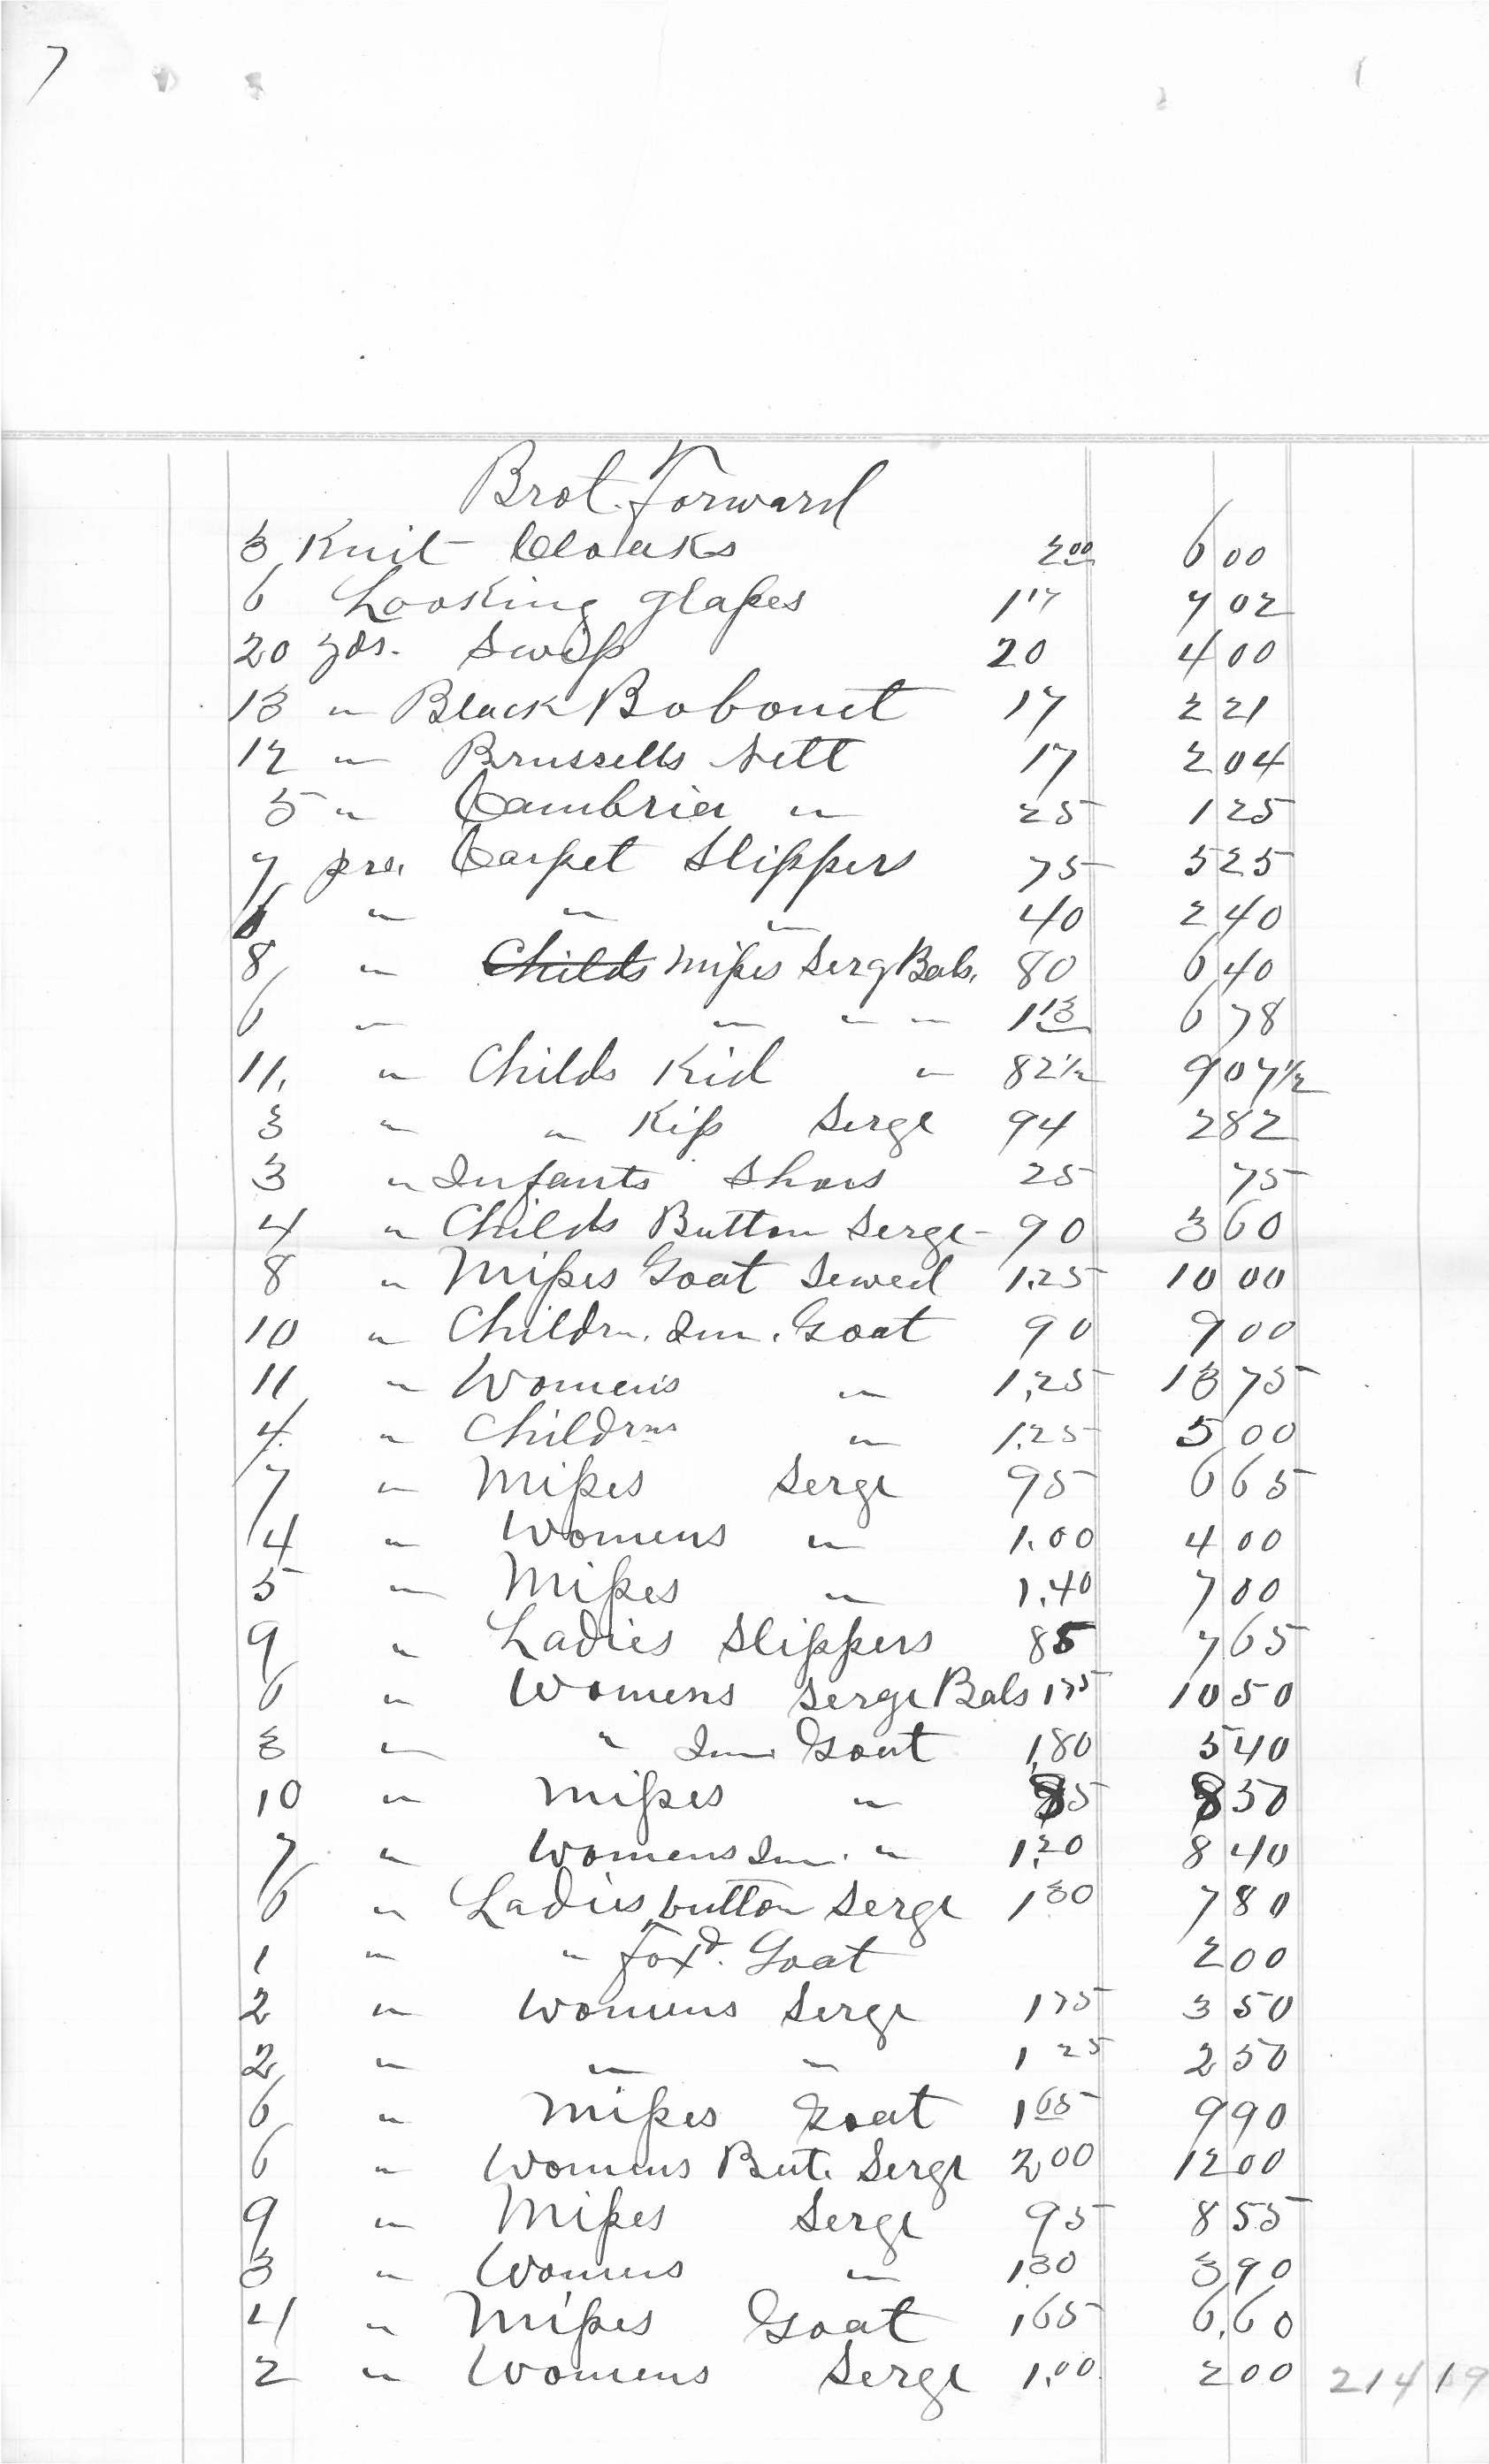 7
Brot. Forward
3 Knit Cloaks 2 00 6 00
6 Looking Glasses 1 17 7 02
20 yds. Swiss 20 4 00
13 " Black Bobonet 17 2 21
12 " Brussells Nett 17 2 04
5 " Cambric " 25 1 25
7 prs. Carpet Slippers 75 5 25
6 " " " 40 2 40
8 " Childs Misses Serg Bals. 80 6 40
6 " " " " 1 13 6 78
11. " Childs Kid " 82 1/2 9 07 1/2
3 " " Kip Serge 94 2 82
3 " Infants Shoes 25 75
4 " Childs Button Serge 90 3 60
8 " Misses Goat Sewed 1.25 10 00
10 " Childrn. Im. Goat 90 9 00
11 " Women's " 1.25 13 75
4 " Childrns " 1.25 5 00
7 " Misses Serge 95 6 65
4 " Womens " 1.00 4 00
5 " Misses " 1.40 7 00
9 " Ladies Slippers 85 7 65
6 " Womens Serge Bals 1 75 10 50
3 " " Im Goat 1.80 5 40
10 " Misses " 85 8 50
7 " Womens Im. " 1.20 8 40
6 " Ladies button Serge 1 30 7 80
1 " " Foxd. Goat 2 00
2 " Womens Serge 1 75 3 50
2 " " " 1 25 2 50
6 " Misses Goat 1 65 9 90
6 " Womens But. Serge 2 00 12 00
9 " Misses Serge 95 8 55
3 " Womens " 1 30 3 90
4 " Misses Goat 1 65 6.60
2 " Womens Serge 1.00 2 00 214 19